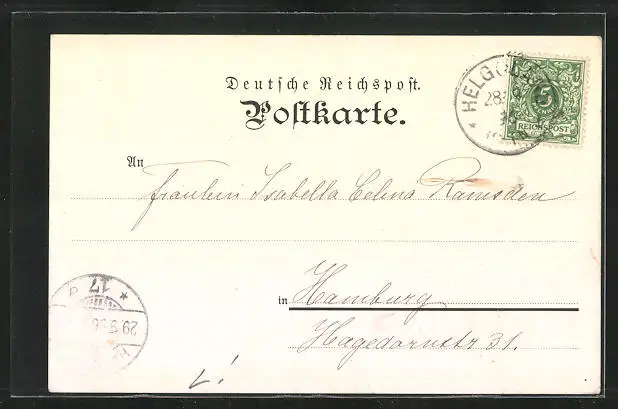 Deutsche Reichspost.
Postkarte.
HELGOLA
28.
5
REICHSPOST
An
Fräulein Isabella Celina Ramsden
in Hamburg
Hagedornstr 31.
17
29.9.96